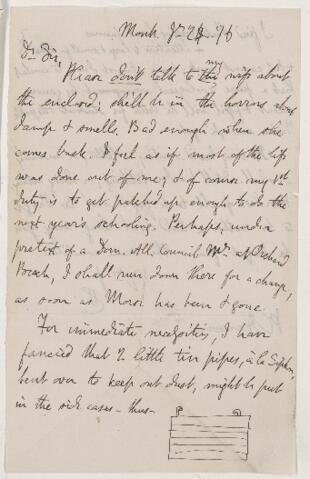 Monk. 8-2-76
Dr Sir,
Please don't talk to my wife about
the enclosed; she'll be in the horrors about
damp & smells. Bad enough when she
comes back. I feel as if most of the life
was done out of me; & of course my 1st
duty is to get patched up enough to do the
next year's schooling. Perhaps, under
pretext of a Dom. All. Council Mg at Orchard
Beach, I shall run down there for a change,
as soon as has been & gone
For immediate necessities, I have
fancied that 2 little tin pipes, à la Siphon,
bent over to keep out dust, might be put
in the side cases - thus -